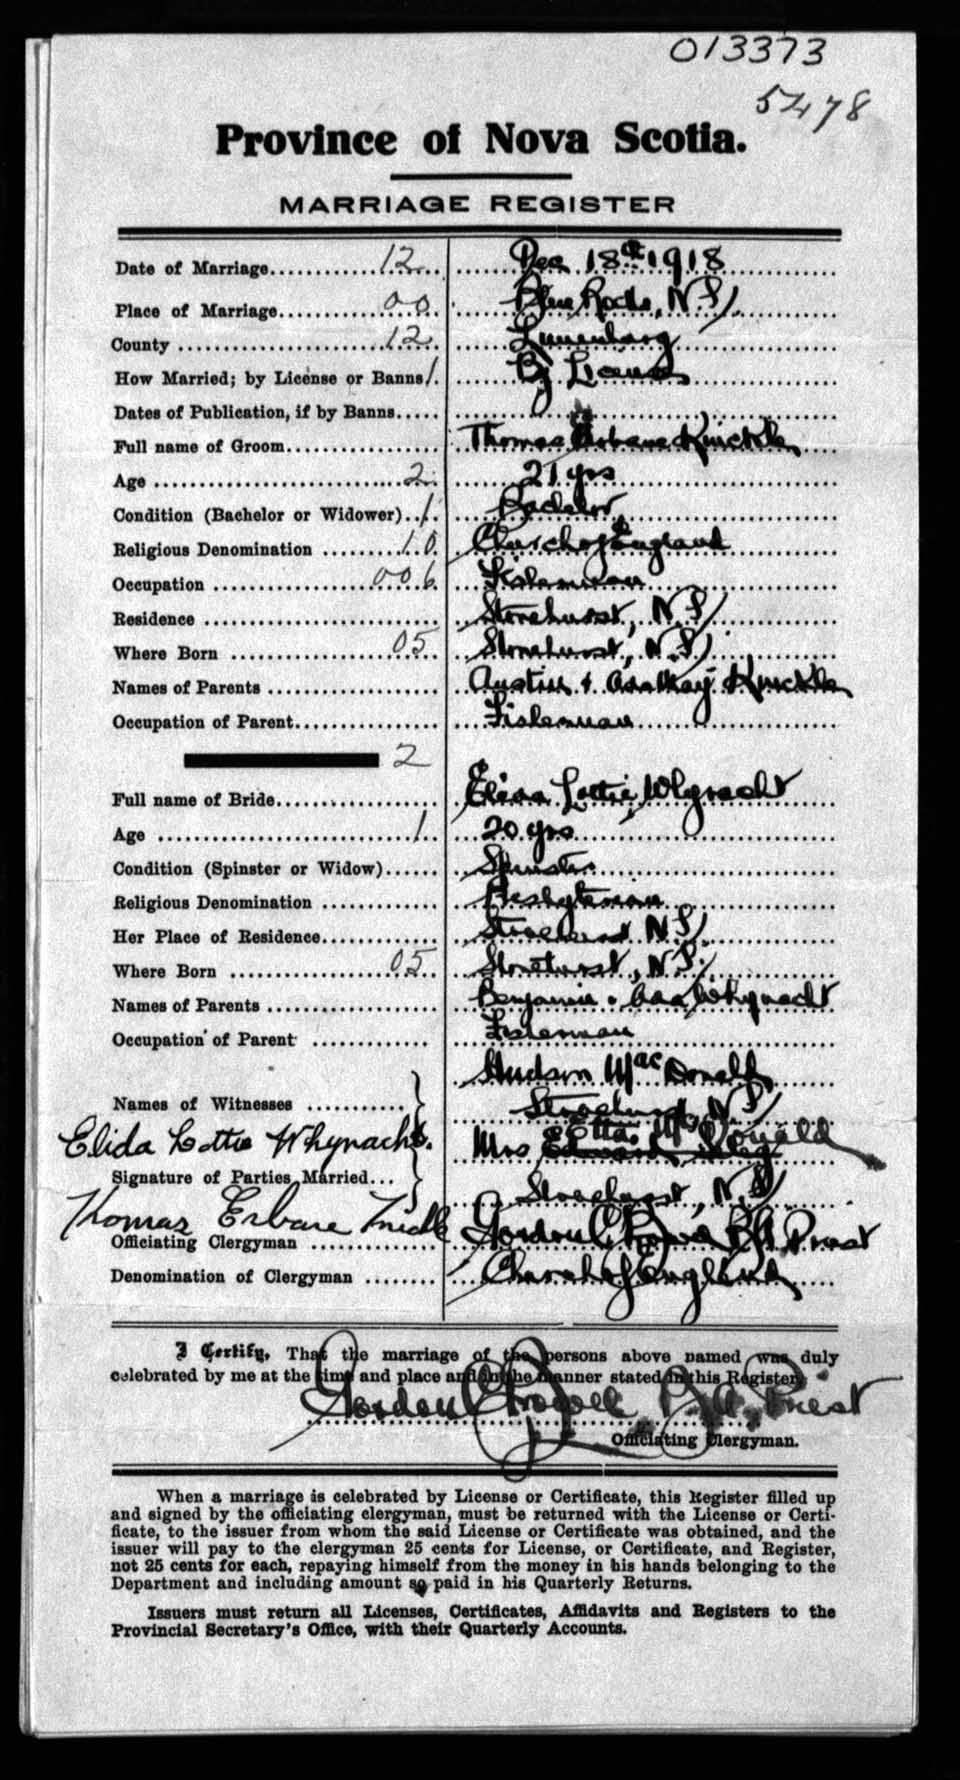 013373
5478
Province of Nova Scotia.
MARRIAGE REGISTER
Date of Marriage 12 Dec 18th 1918
Place of Marriage 00 Blue Rocks, N.S.
County 12 Lunenburg
How Married; by License or Banns 1 By License
Dates of Publication, if by Banns
Full name of Groom Thomas Erbane Knickle
Age 2 21 yrs
Condition (Bachelor or Widower) 1 Bachelor
Religious Denomination 10 Church of England
Occupation 006 Fisherman
Residence Stonehurst, N.S.
Where Born 05 Stonehurst, N.S.
Names of Parents Austin & Knickle
Occupation of Parent Fisherman
2
Full name of Bride Elida Lottie Whynacht
Age 1 20 yrs
Condition (Spinster or Widow) Spinster
Religious Denomination Presbyterian
Her Place of Residence Stonehurst N.S.
Where Born 05 Stonehurst, N.S.
Names of Parents Benjamin & Ada Whynacht
Occupation of Parent Fisherman
Hudson MacDonald
Names of Witnesses Stonehurst, N.S.
Elida Lottie Whynacht. Mrs Etta McDonald
Signature of Parties Married Stonehurst, N.S.
Thomas Erbane Knickle
Officiating Clergyman Gordon C B.A. Priest
Denomination of Clergyman Church of England
I Certify, That the marriage of the persons above named was duly
celebrated by me at the time and place and in the manner stated in this Register.
Gordon C B.A., Priest
Officiating Clergyman.
When a marriage is celebrated by License or Certificate, this Register filled up
and signed by the officiating clergyman, must be returned with the License or Certi-
ficate, to the issuer from whom the said License or Certificate was obtained, and the
issuer will pay to the clergyman 25 cents for License, or Certificate, and Register,
not 25 cents for each, repaying himself from the money in his hands belonging to the
Department and including amount so paid in his Quarterly Returns.
Issuers must return all Licenses, Certificates, Affidavits and Registers to the
Provincial Secretary's Office, with their Quarterly Accounts.